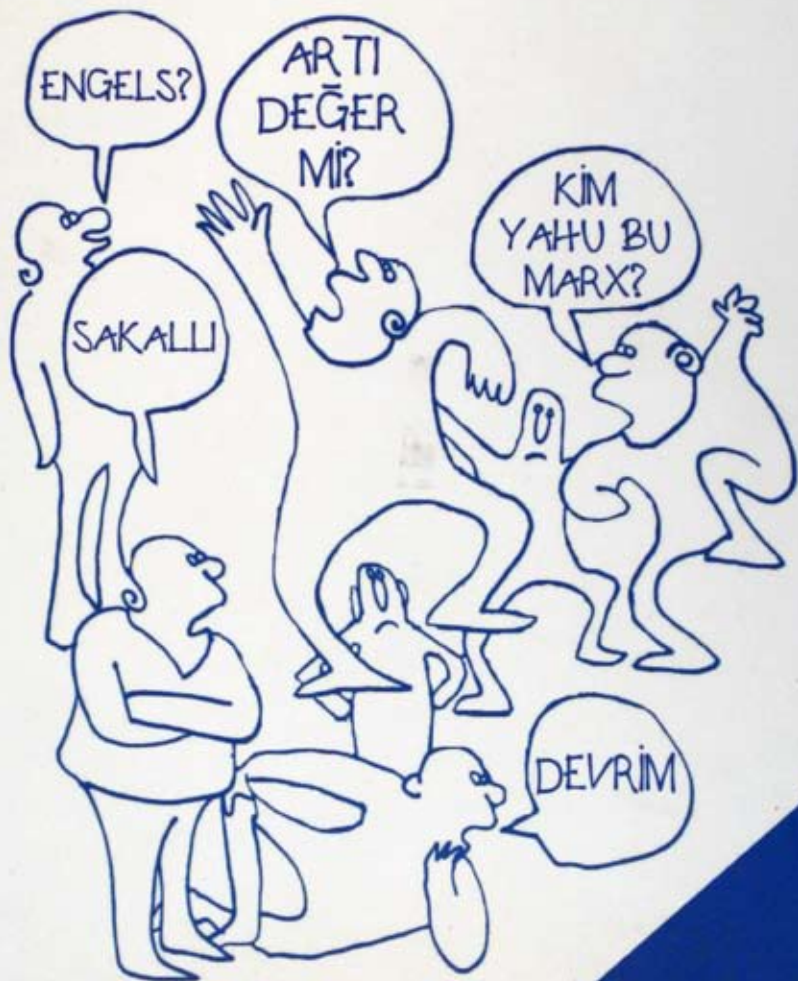 ENGELS?
ARTI
DEĞER
Mİ?
KİM
YAHU BU
MARX?
SAKALLI
DEVRİM